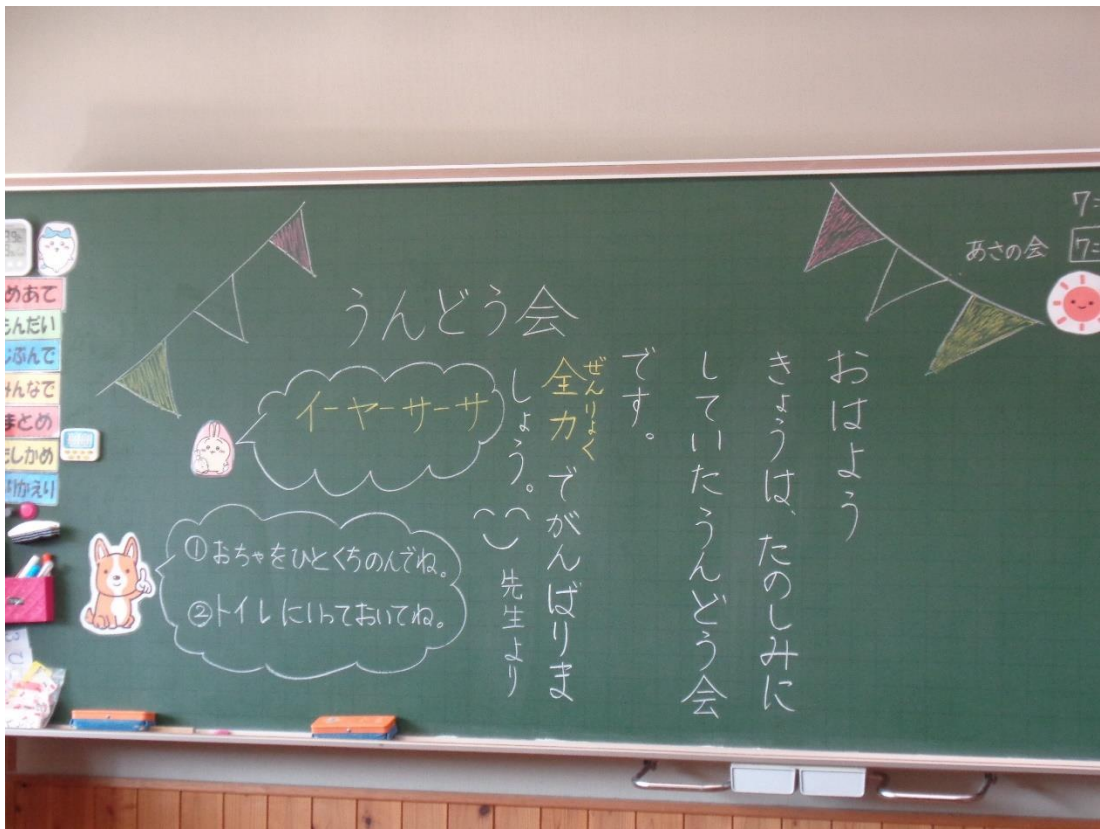 うんどう会
おはよう
きょうは、たのしみに
していたうんどう会
です。
ぜんりょく
全力でがんばりま
しょう。
先生より
イーヤーサーサ
①おちゃをひとくちのんでね。
②トイレにいっておいてね。
あさの会
めあて
もんだい
じぶんで
みんなで
まとめ
たしかめ
ふりかえり